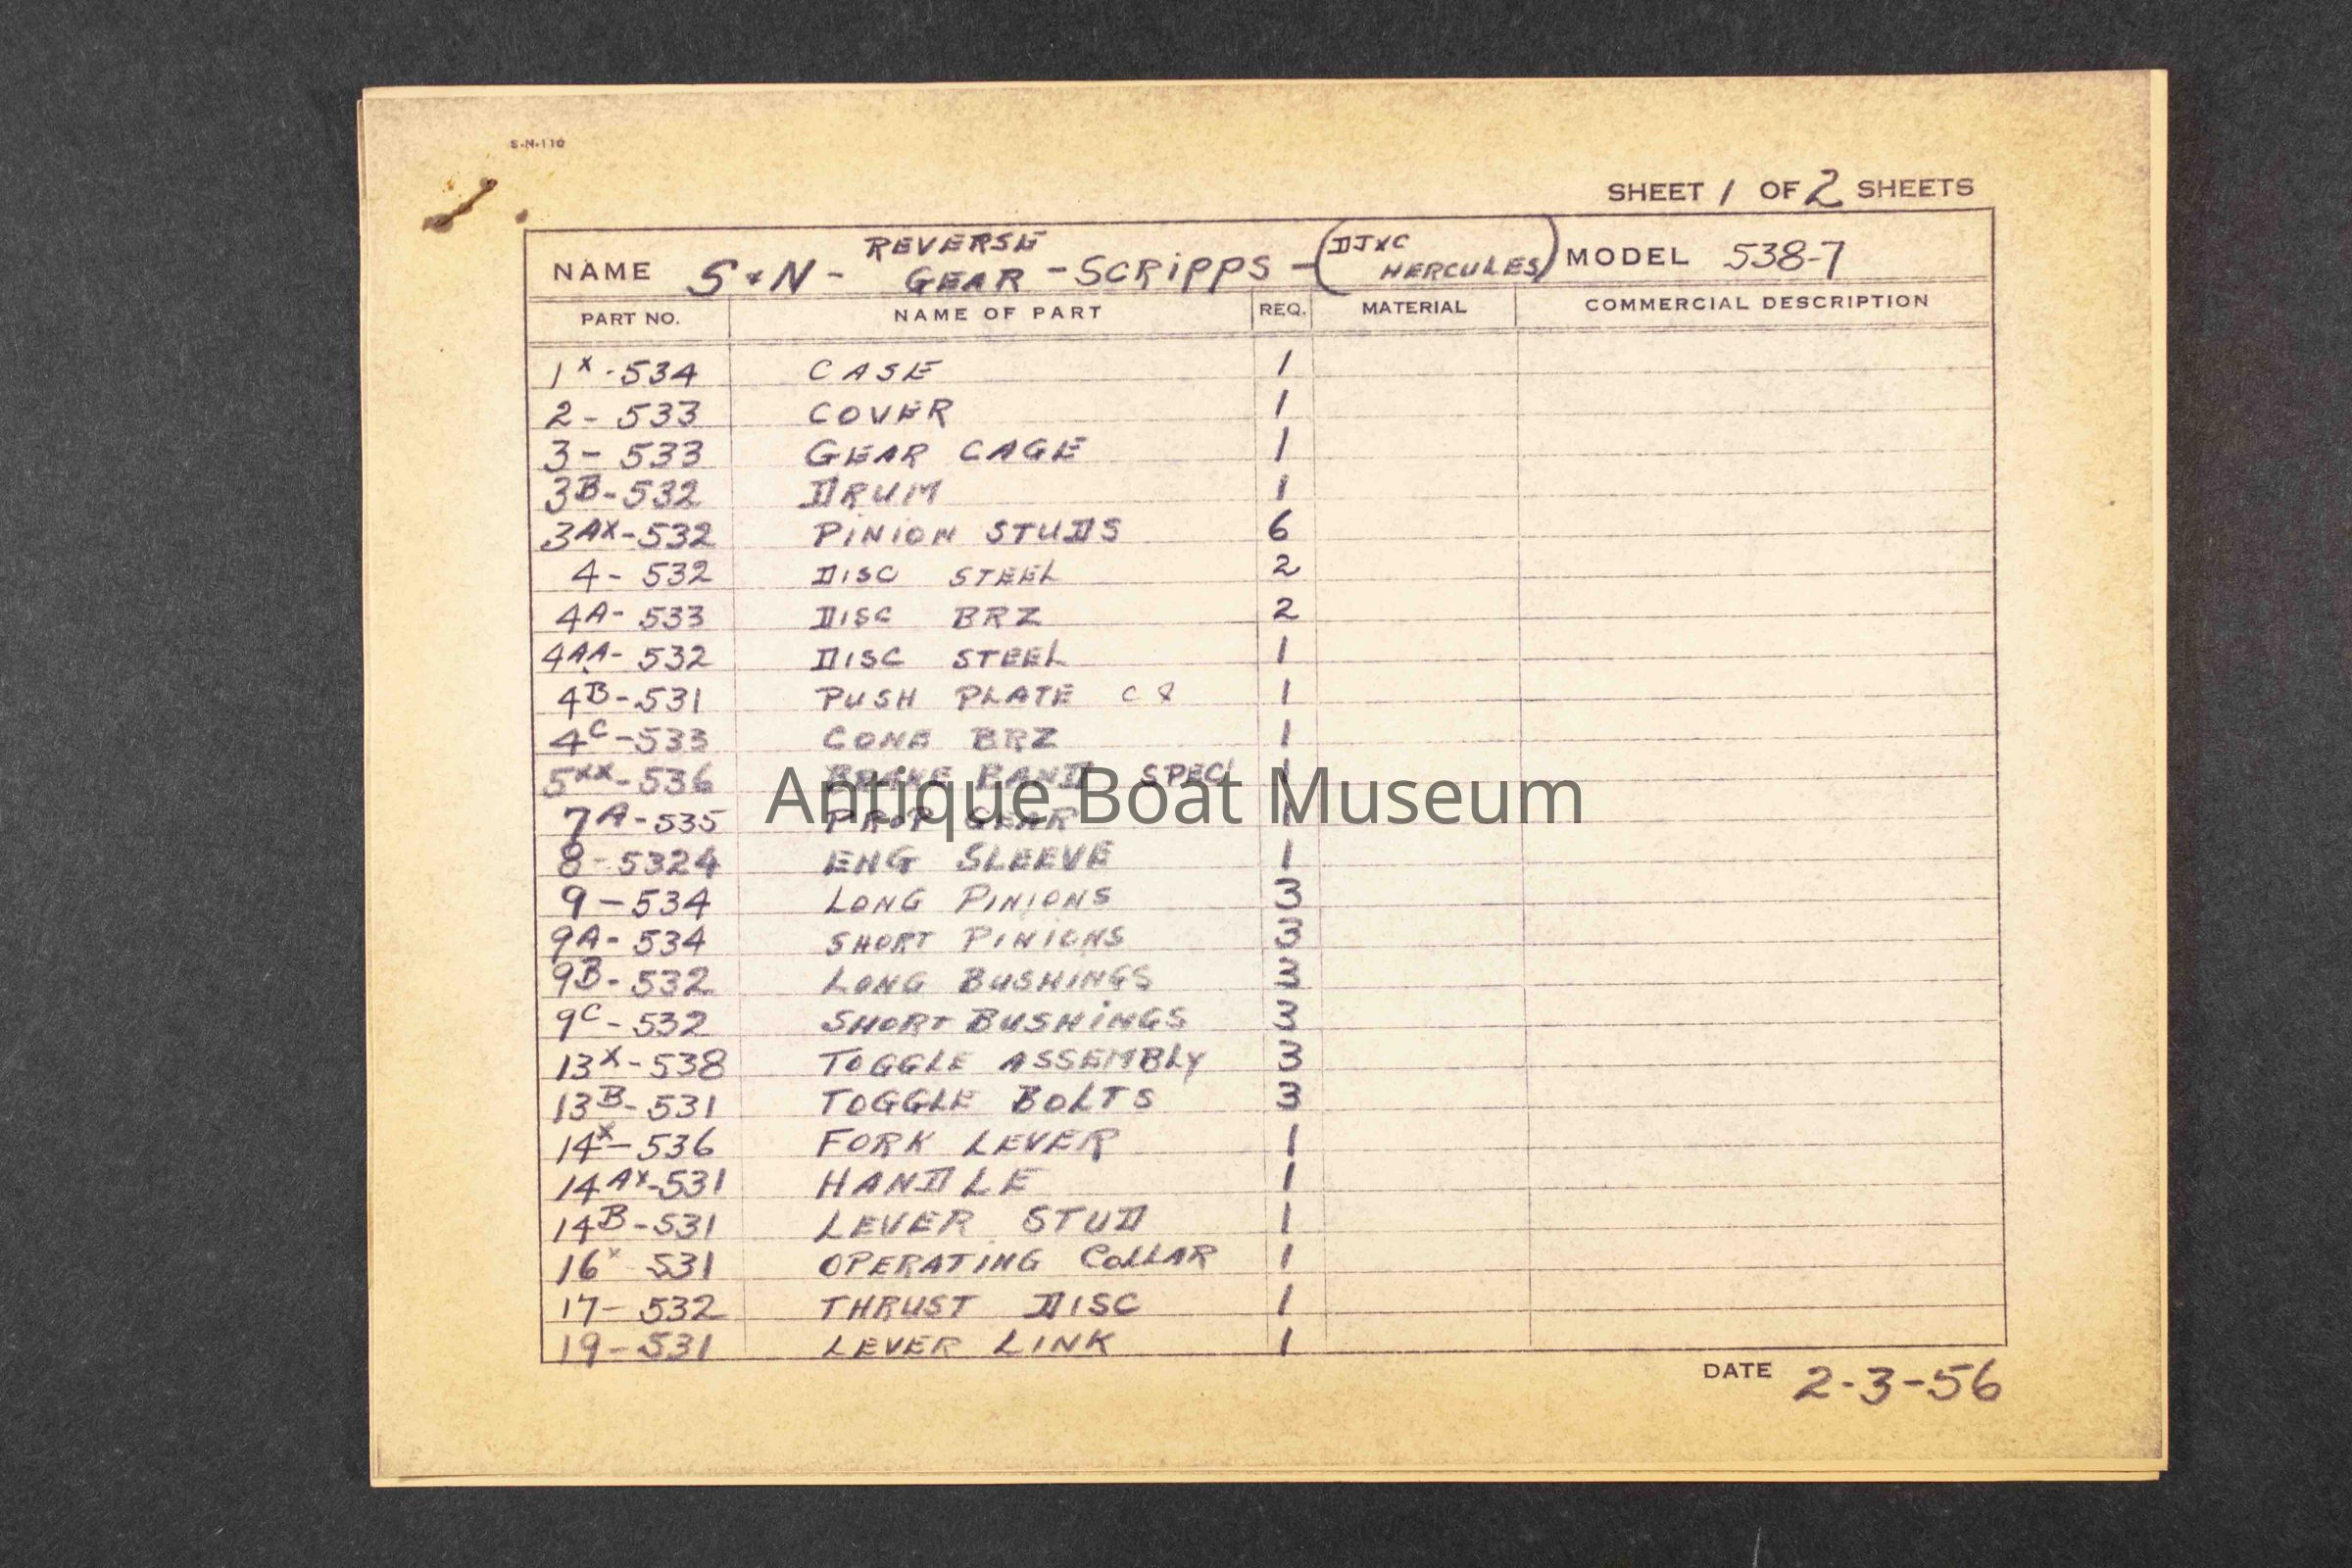 S-N-110
SHEET 1 OF 2 SHEETS
NAME S & N - REVERSE GEAR - SCRIPPS - (DJXC HERCULES) MODEL 538-7
PART NO. NAME OF PART REQ. MATERIAL COMMERCIAL DESCRIPTION
1X-534 CASE 1
2-533 COVER 1
3-533 GEAR CAGE 1
3B-532 DRUM 1
3AX-532 PINION STUDS 6
4-532 DISC STEEL 2
4A-533 DISC BRZ 2
4AA-532 DISC STEEL 1
4B-531 PUSH PLATE 1
4C-533 CONE BRZ 1
5XX-536 BRAKE BAND SPECL 1
7A-535 PROP GEAR 1
Antique Boat Museum
8-5324 ENG SLEEVE 1
9-534 LONG PINIONS 3
9A-534 SHORT PINIONS 3
9B-532 LONG BUSHINGS 3
9C-532 SHORT BUSHINGS 3
13X-538 TOGGLE ASSEMBLY 3
13B-531 TOGGLE BOLTS 3
14X-536 FORK LEVER 1
14AX-531 HANDLE 1
14B-531 LEVER STUD 1
16X 531 OPERATING COLLAR 1
17-532 THRUST DISC 1
19-531 LEVER LINK 1
DATE 2-3-56